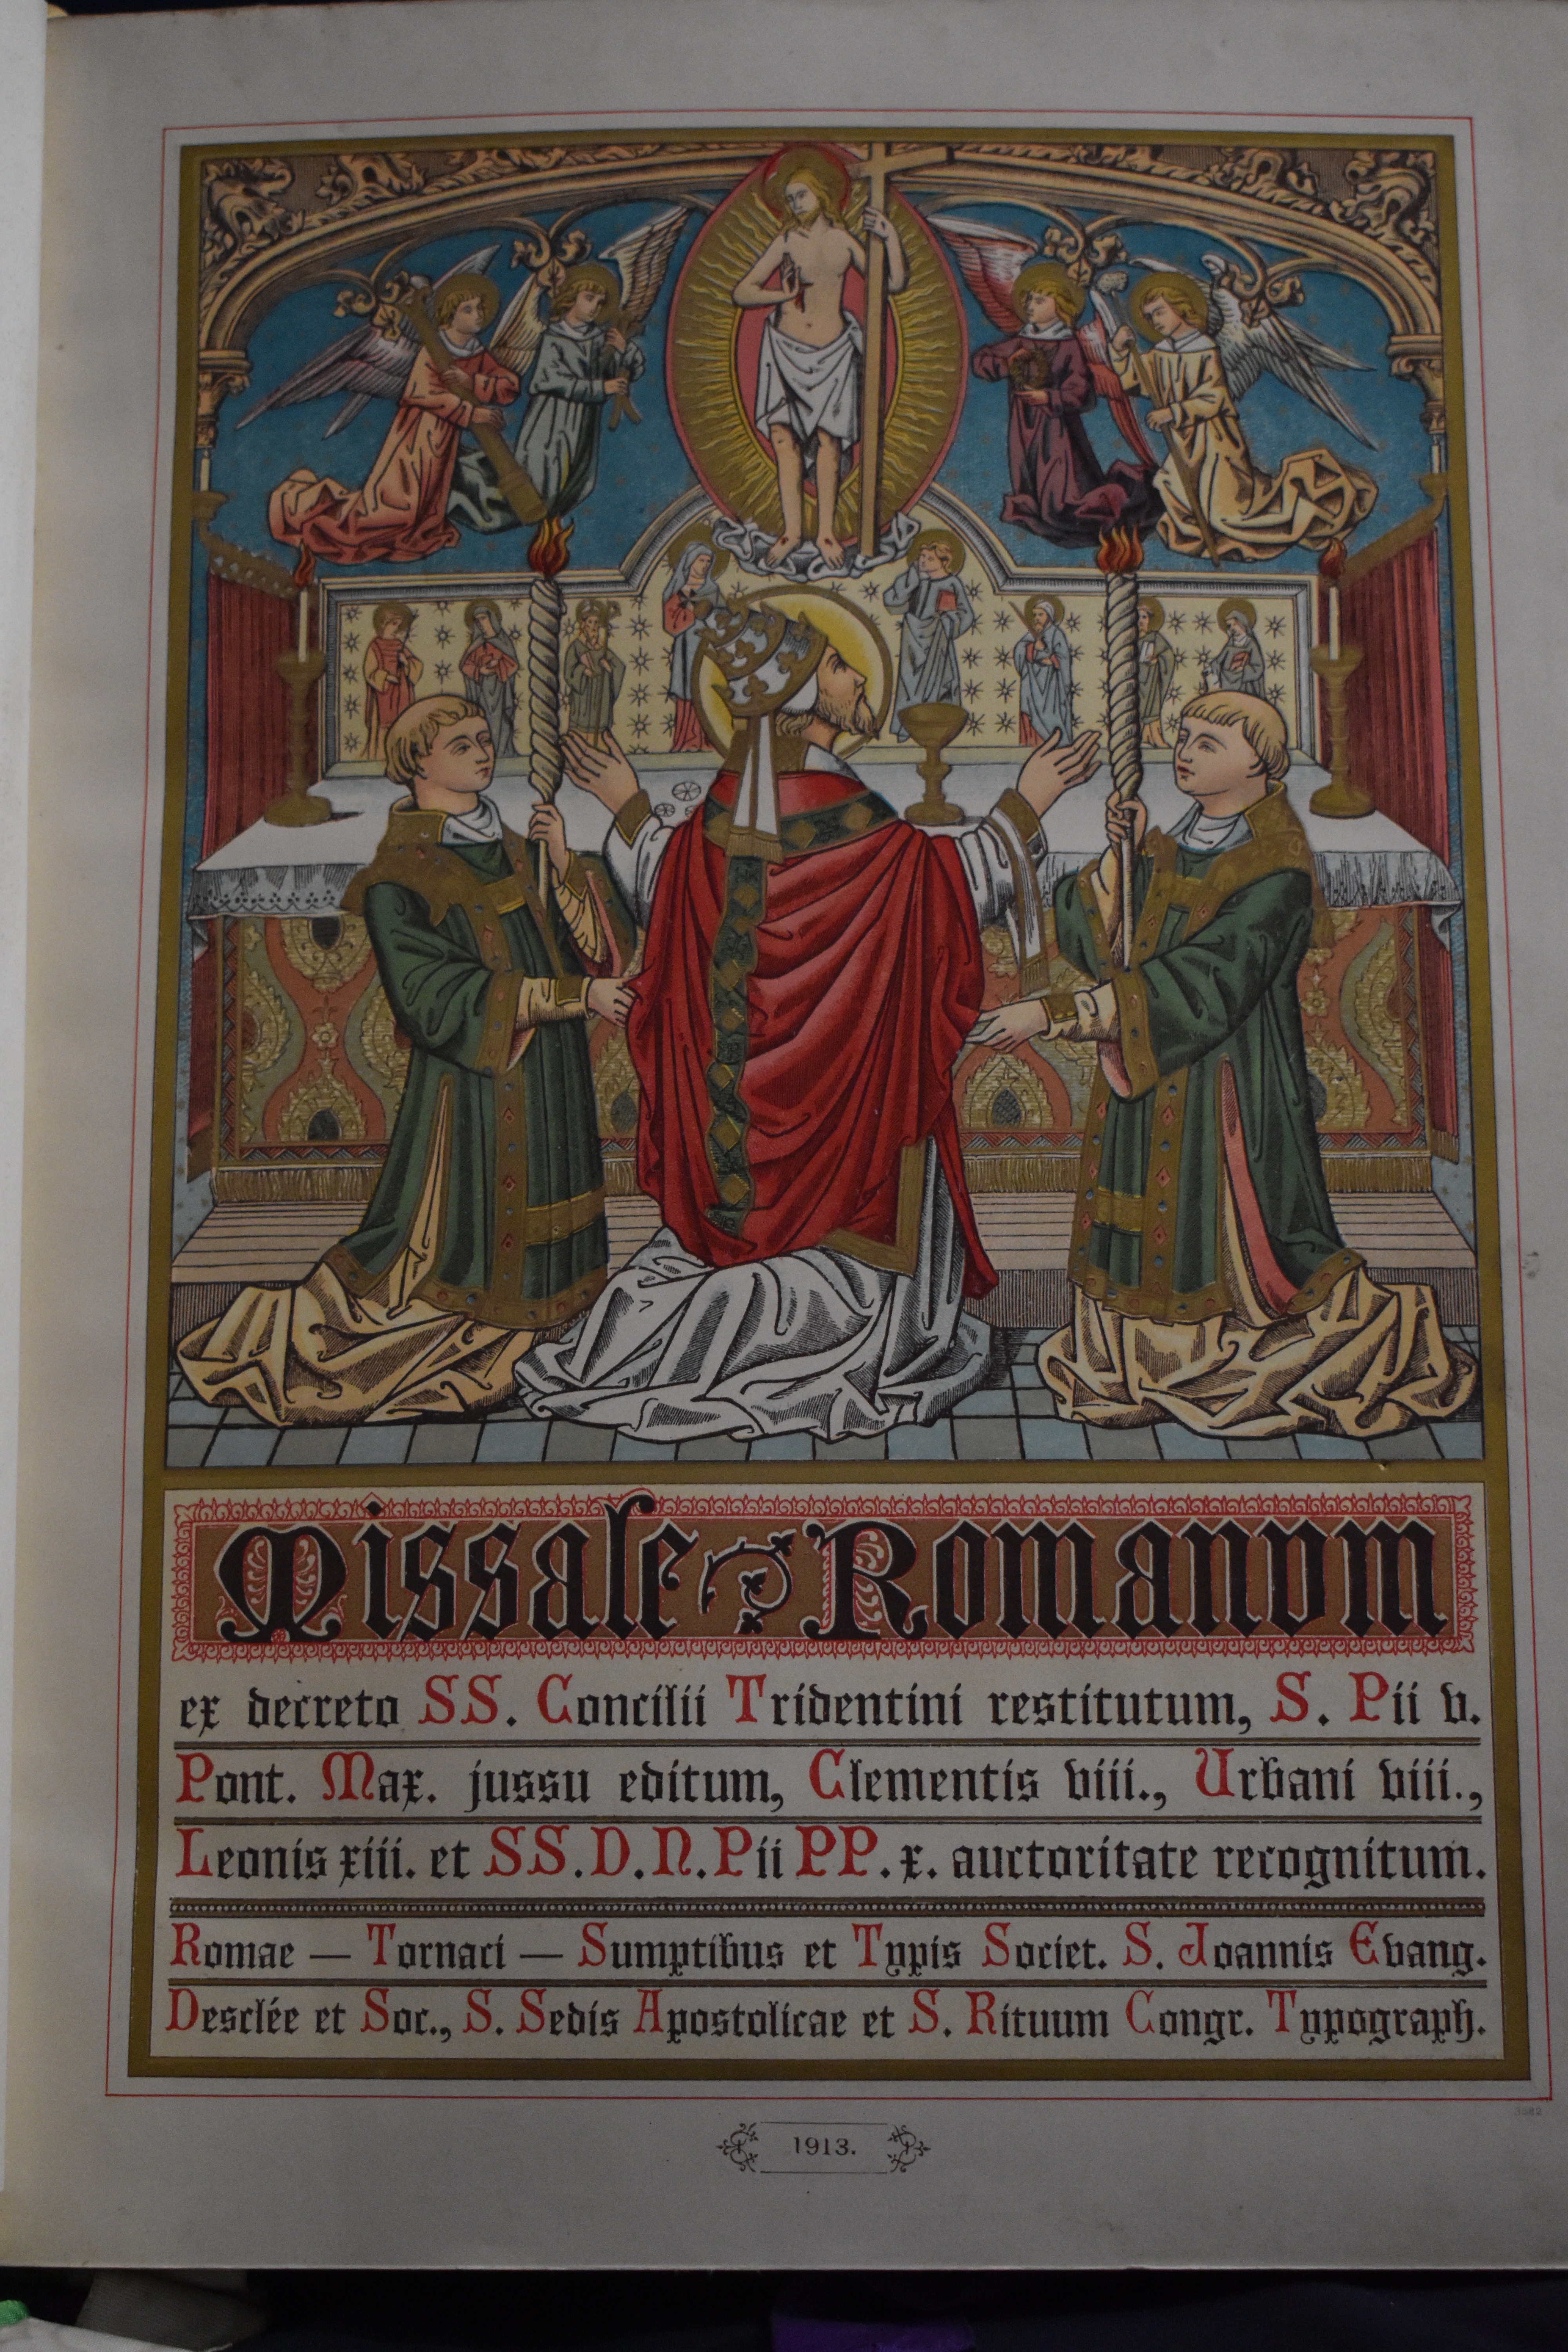 Missale Romanum
ex decreto SS. Concilii Tridentini restitutum, S. Pii v.
Pont. Max. jussu editum, Clementis viii., Urbani viii.,
Leonis xiii. et SS.D.N.Pii PP.x. auctoritate recognitum.
Romae — Tornaci — Sumptibus et Typis Societ. S. Joannis Evang.
Desclée et Soc., S. Sedis Apostolicae et S. Rituum Congr. Typograph.
1913.